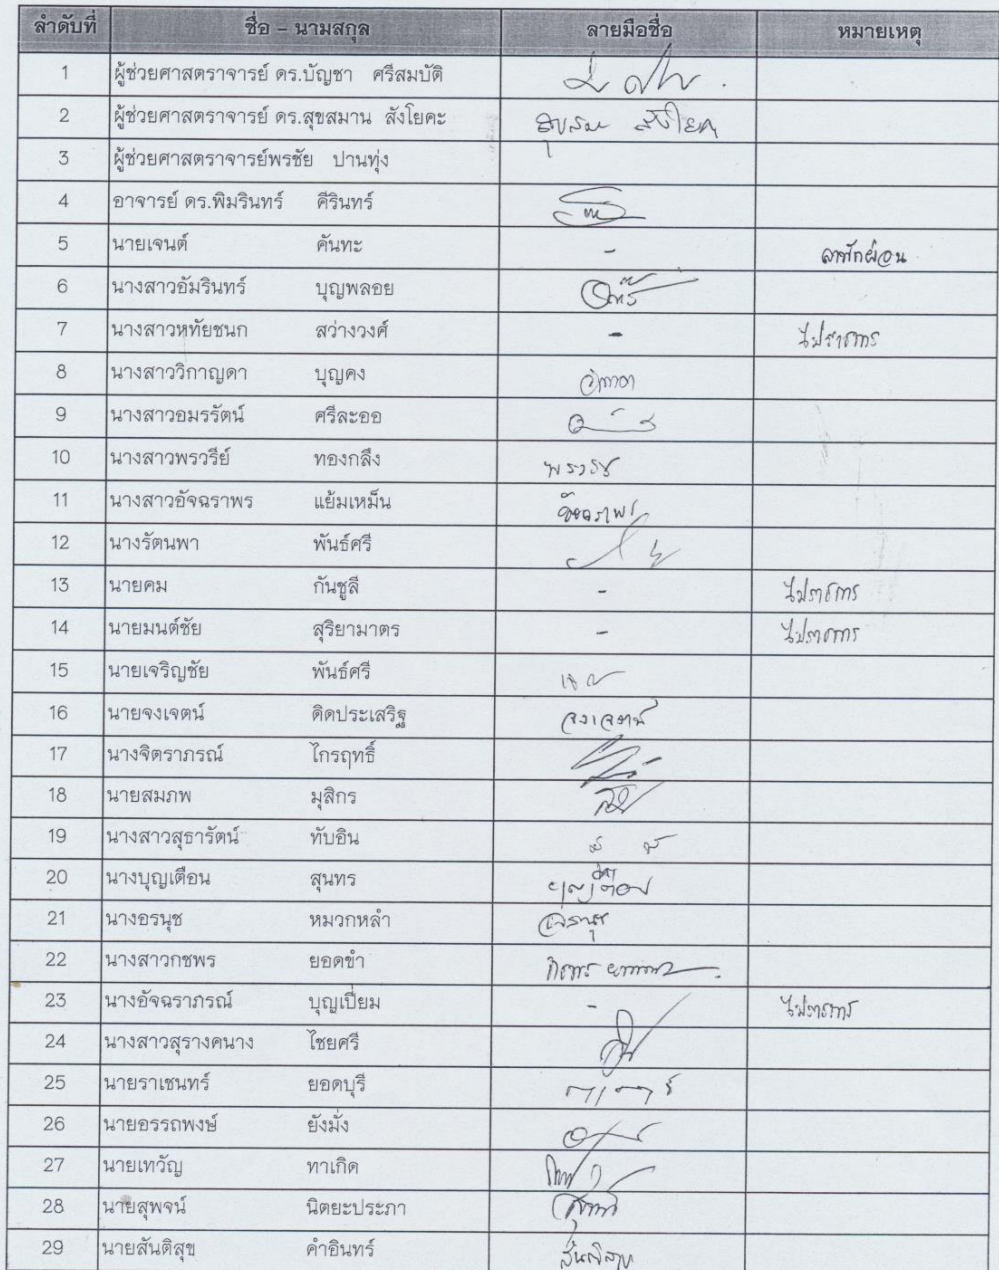 ลำดับที่ ชื่อ – นามสกุล ลายมือชื่อ หมายเหตุ
1 ผู้ช่วยศาสตราจารย์ ดร.บัญชา ศรีสมบัติ
2 ผู้ช่วยศาสตราจารย์ ดร.สุขสมาน สังโยคะ สุขสม สังโยค
3 ผู้ช่วยศาสตราจารย์พรชัย ปานทุ่ง
4 อาจารย์ ดร.พิมรินทร์ คีรินทร์
5 นายเจนต์ คันทะ - ลาพักผ่อน
6 นางสาวอัมรินทร์ บุญพลอย
7 นางสาวหทัยชนก สว่างวงศ์ - ไปราชการ
8 นางสาววิกาญดา บุญคง
9 นางสาวอมรรัตน์ ศรีละออ
10 นางสาวพรวรีย์ ทองกลึง
11 นางสาวอัจฉราพร แย้มเหม็น อัจฉราพร
12 นางรัตนพา พันธ์ศรี
13 นายคม กันชูลี - ไปราชการ
14 นายมนต์ชัย สุริยามาตร - ไปราชการ
15 นายเจริญชัย พันธ์ศรี
16 นายจงเจตน์ ดิดประเสริฐ จงเจตน์
17 นางจิตราภรณ์ ไกรฤทธิ์
18 นายสมภพ มุสิกร
19 นางสาวสุธารัตน์ ทับอิน
20 นางบุญเตือน สุนทร บุญเตือน
21 นางอรนุช หมวกหลำ อรนุช
22 นางสาวกชพร ยอดขำ
23 นางอัจฉราภรณ์ บุญเปี่ยม - ไปราชการ
24 นางสาวสุรางคนาง ไชยศรี
25 นายราเชนทร์ ยอดบุรี
26 นายอรรถพงษ์ ยังมั่ง
27 นายเทวัญ ทาเกิด
28 นายสุพจน์ นิตยะประภา
29 นายสันติสุข คำอินทร์ สันติสุข